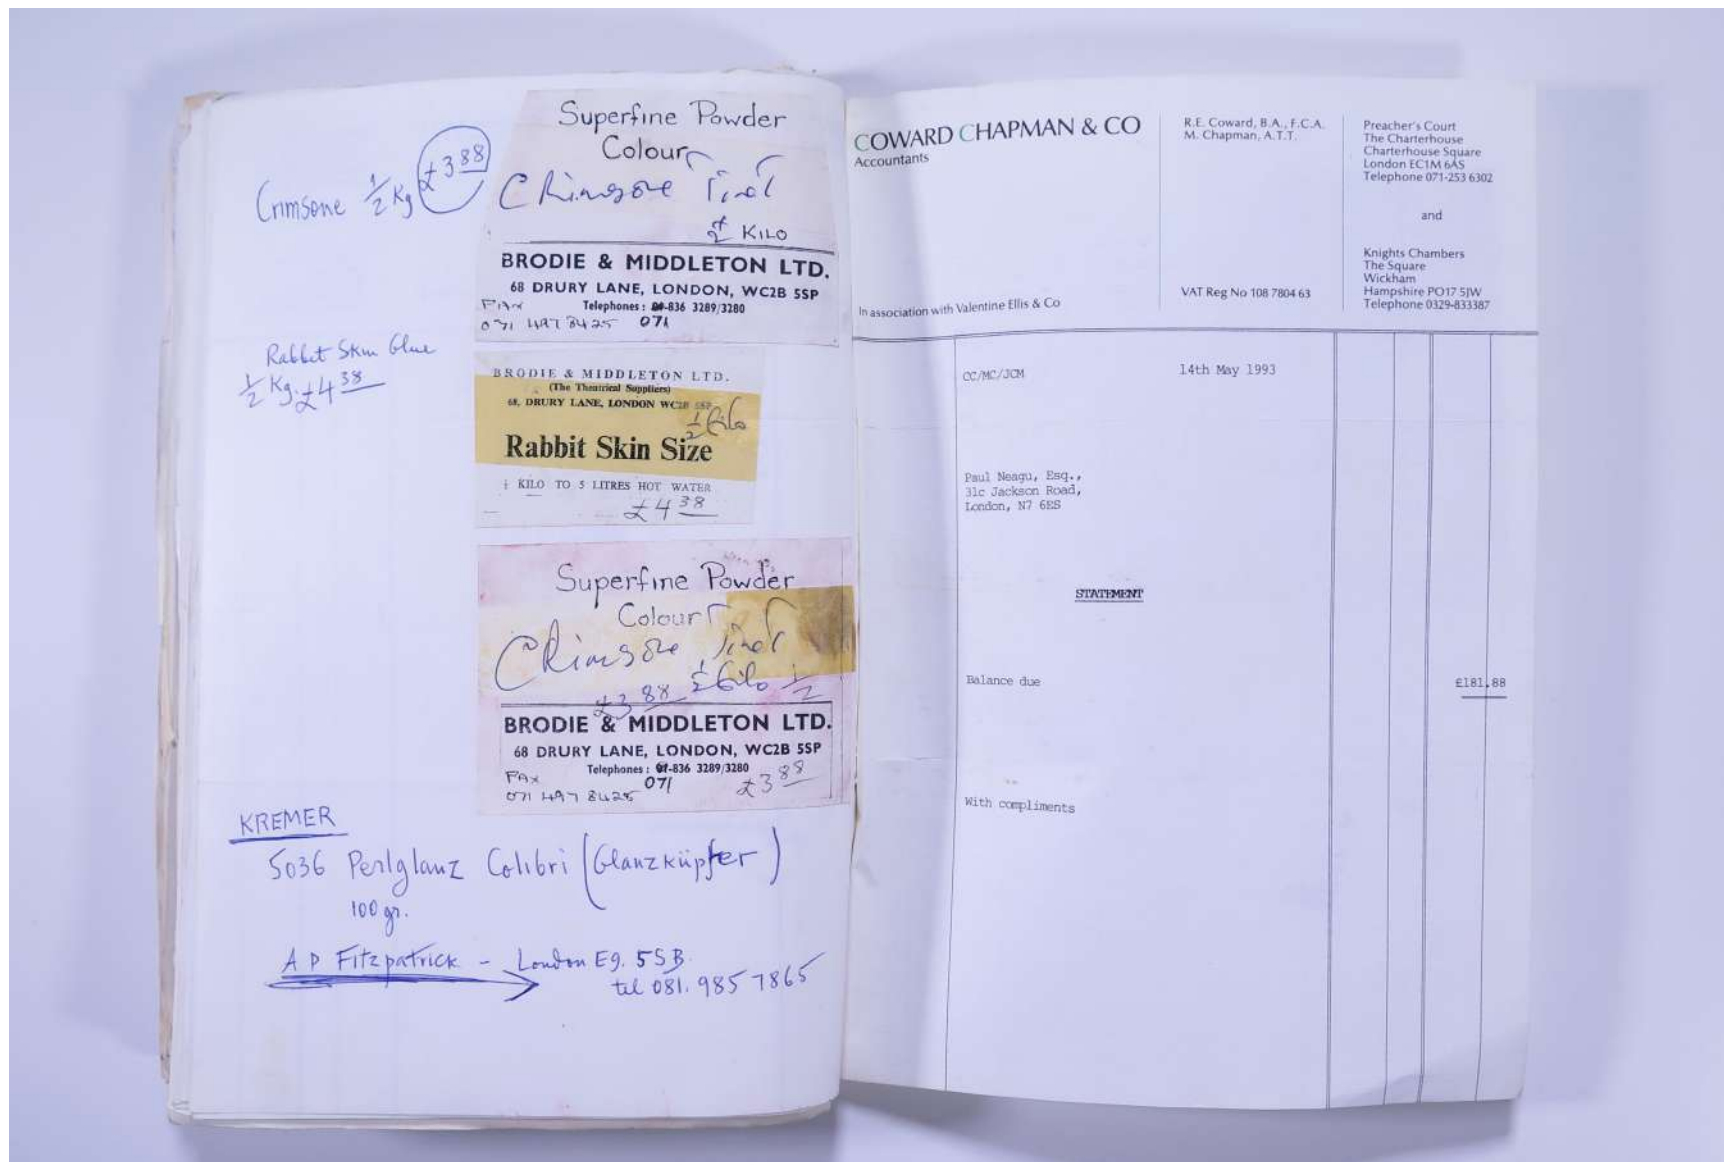 Crimsone 1/2 Kg £3 88
Superfine Powder
Colour
Chrimsone Tint
1/2 KILO
BRODIE & MIDDLETON LTD.
68 DRURY LANE, LONDON, WC2B 5SP
Telephones: 01-836 3289/3280
FAX
071 497 8425 071
Rabbit Skin Glue
1/2 Kg. £4 38
BRODIE & MIDDLETON LTD.
(The Theatrical Suppliers)
68, DRURY LANE, LONDON WC2B 5SP
1/2 Kilo
Rabbit Skin Size
½ KILO TO 5 LITRES HOT WATER
£4 38
Superfine Powder
Colour
Chrimsone Tint
£3 88 1/2 Kilo 1/2
BRODIE & MIDDLETON LTD.
68 DRURY LANE, LONDON, WC2B 5SP
Telephones: 01-836 3289/3280
FAX 071 £3 88
071 497 8425
KREMER
5036 Perlglanz Colibri (Glanzküpfer)
100 gr.
A P Fitzpatrick - London E9. 5SB.
tel 081. 985 7865
COWARD CHAPMAN & CO
Accountants
In association with Valentine Ellis & Co
R.E. Coward, B.A., F.C.A.
M. Chapman, A.T.T.
VAT Reg No 108 7804 63
Preacher's Court
The Charterhouse
Charterhouse Square
London EC1M 6AS
Telephone 071-253 6302
and
Knights Chambers
The Square
Wickham
Hampshire PO17 5JW
Telephone 0329-833387
CC/MC/JCM 14th May 1993
Paul Neagu, Esq.,
31c Jackson Road,
London, N7 6ES
STATEMENT
Balance due £181.88
With compliments